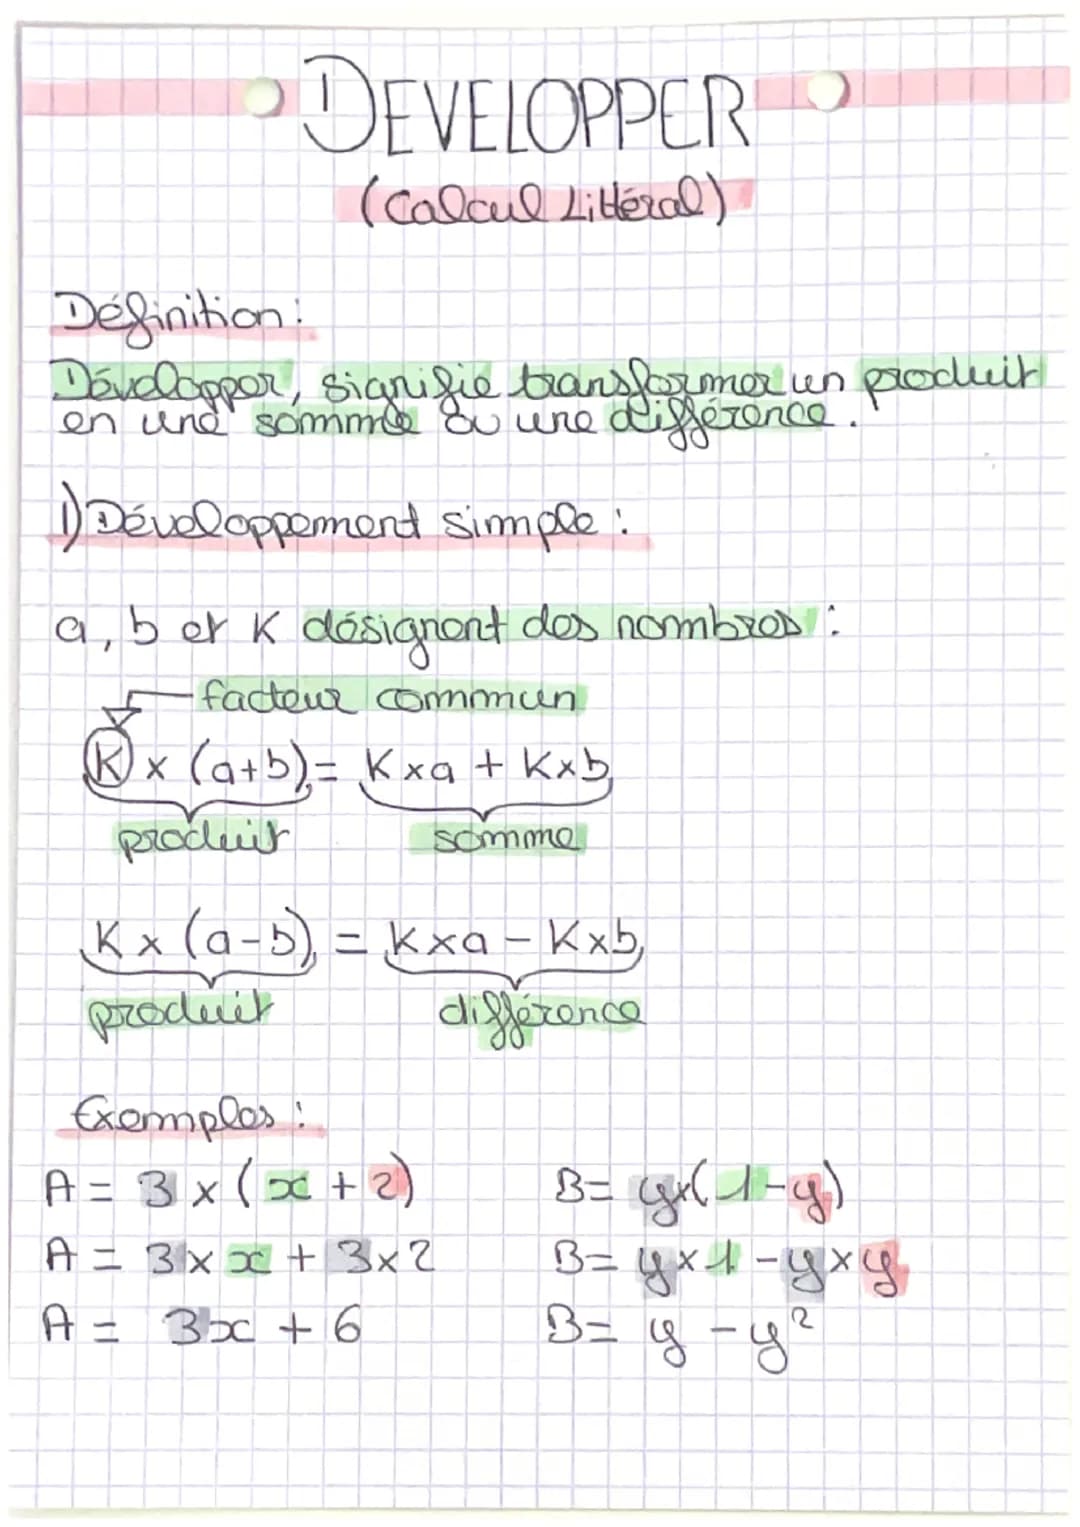 DEVELOPPER
(Calcul Littéral)
Définition :
Développer, signifie transformer un produit
en une somme ou une différence.
1) Développement simple :
a, b et K désignent des nombres :
facteur commun
K × (a+b) = K×a + K×b
produit somme
K × (a-b) = K×a - K×b
produit différence
Exemples :
A = 3 × (x + 2) B= y×(1-y)
A = 3×x + 3×2 B= y×1-y×y
A = 3x + 6 B= y - y²